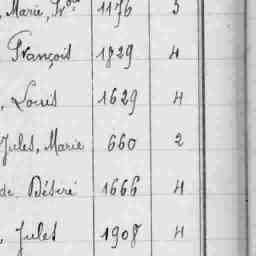 , Marie, Fçois 1176 3
François 1829 4
, Louis 1629 4
Jules, Marie 660 2
de Désiré 1666 4
, Jules 1908 4